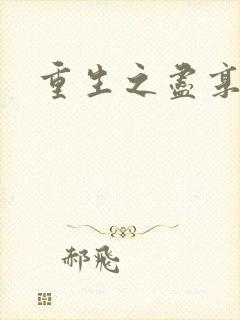 重生之盡享
郝飛